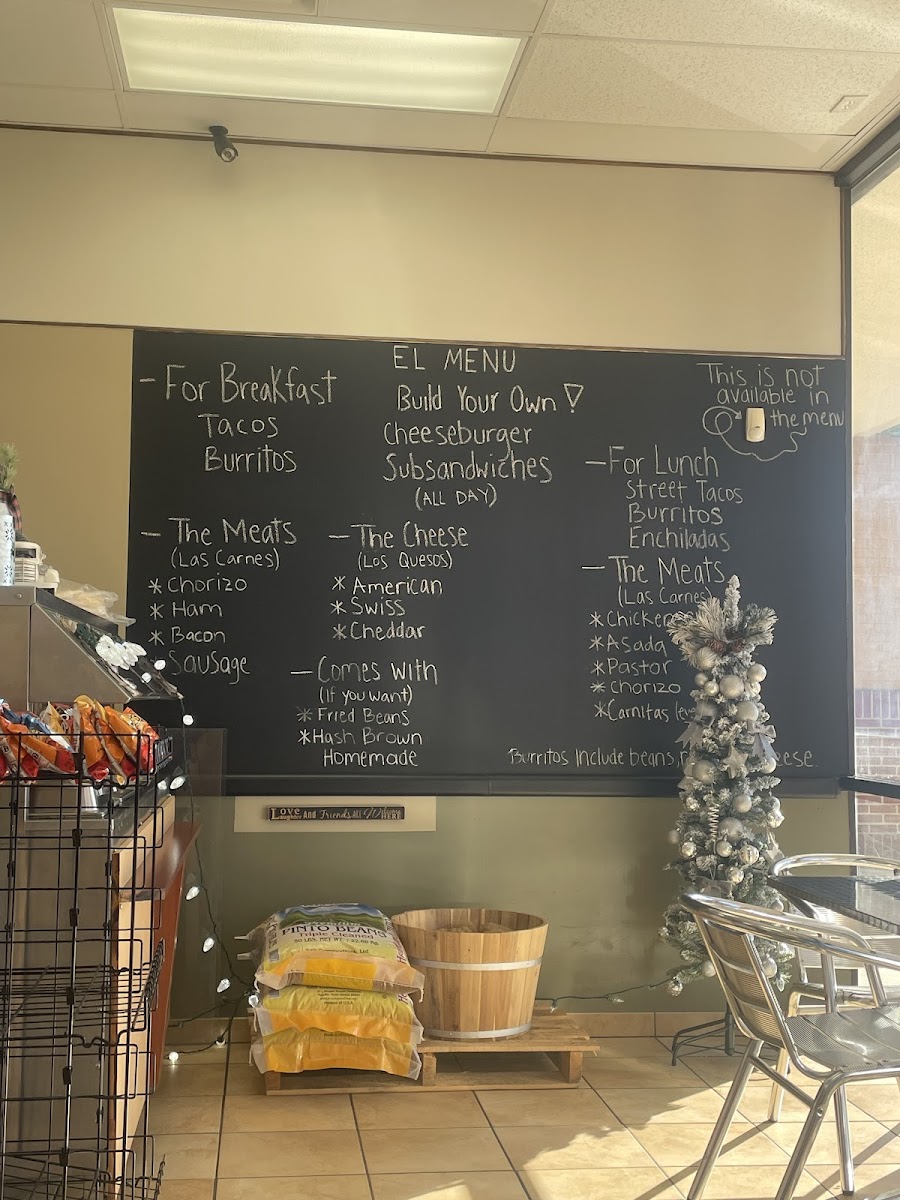 EL MENU
- For Breakfast
Tacos
Burritos
Build Your Own!
Cheeseburger
Subsandwiches
(ALL DAY)
This is not
available in
the menu
- For Lunch
Street Tacos
Burritos
Enchiladas
- The Meats
(Las Carnes)
* Chorizo
* Ham
* Bacon
* Sausage
- The Cheese
(Los Quesos)
* American
* Swiss
* Cheddar
- Comes with
(If you want)
* Fried Beans
* Hash Brown
Homemade
- The Meats
(Las Carnes)
* Chicken
* Asada
* Pastor
* Chorizo
* Carnitas
Burritos include beans,
Love And Friends
PINTO BEANS
Triple Cleaned